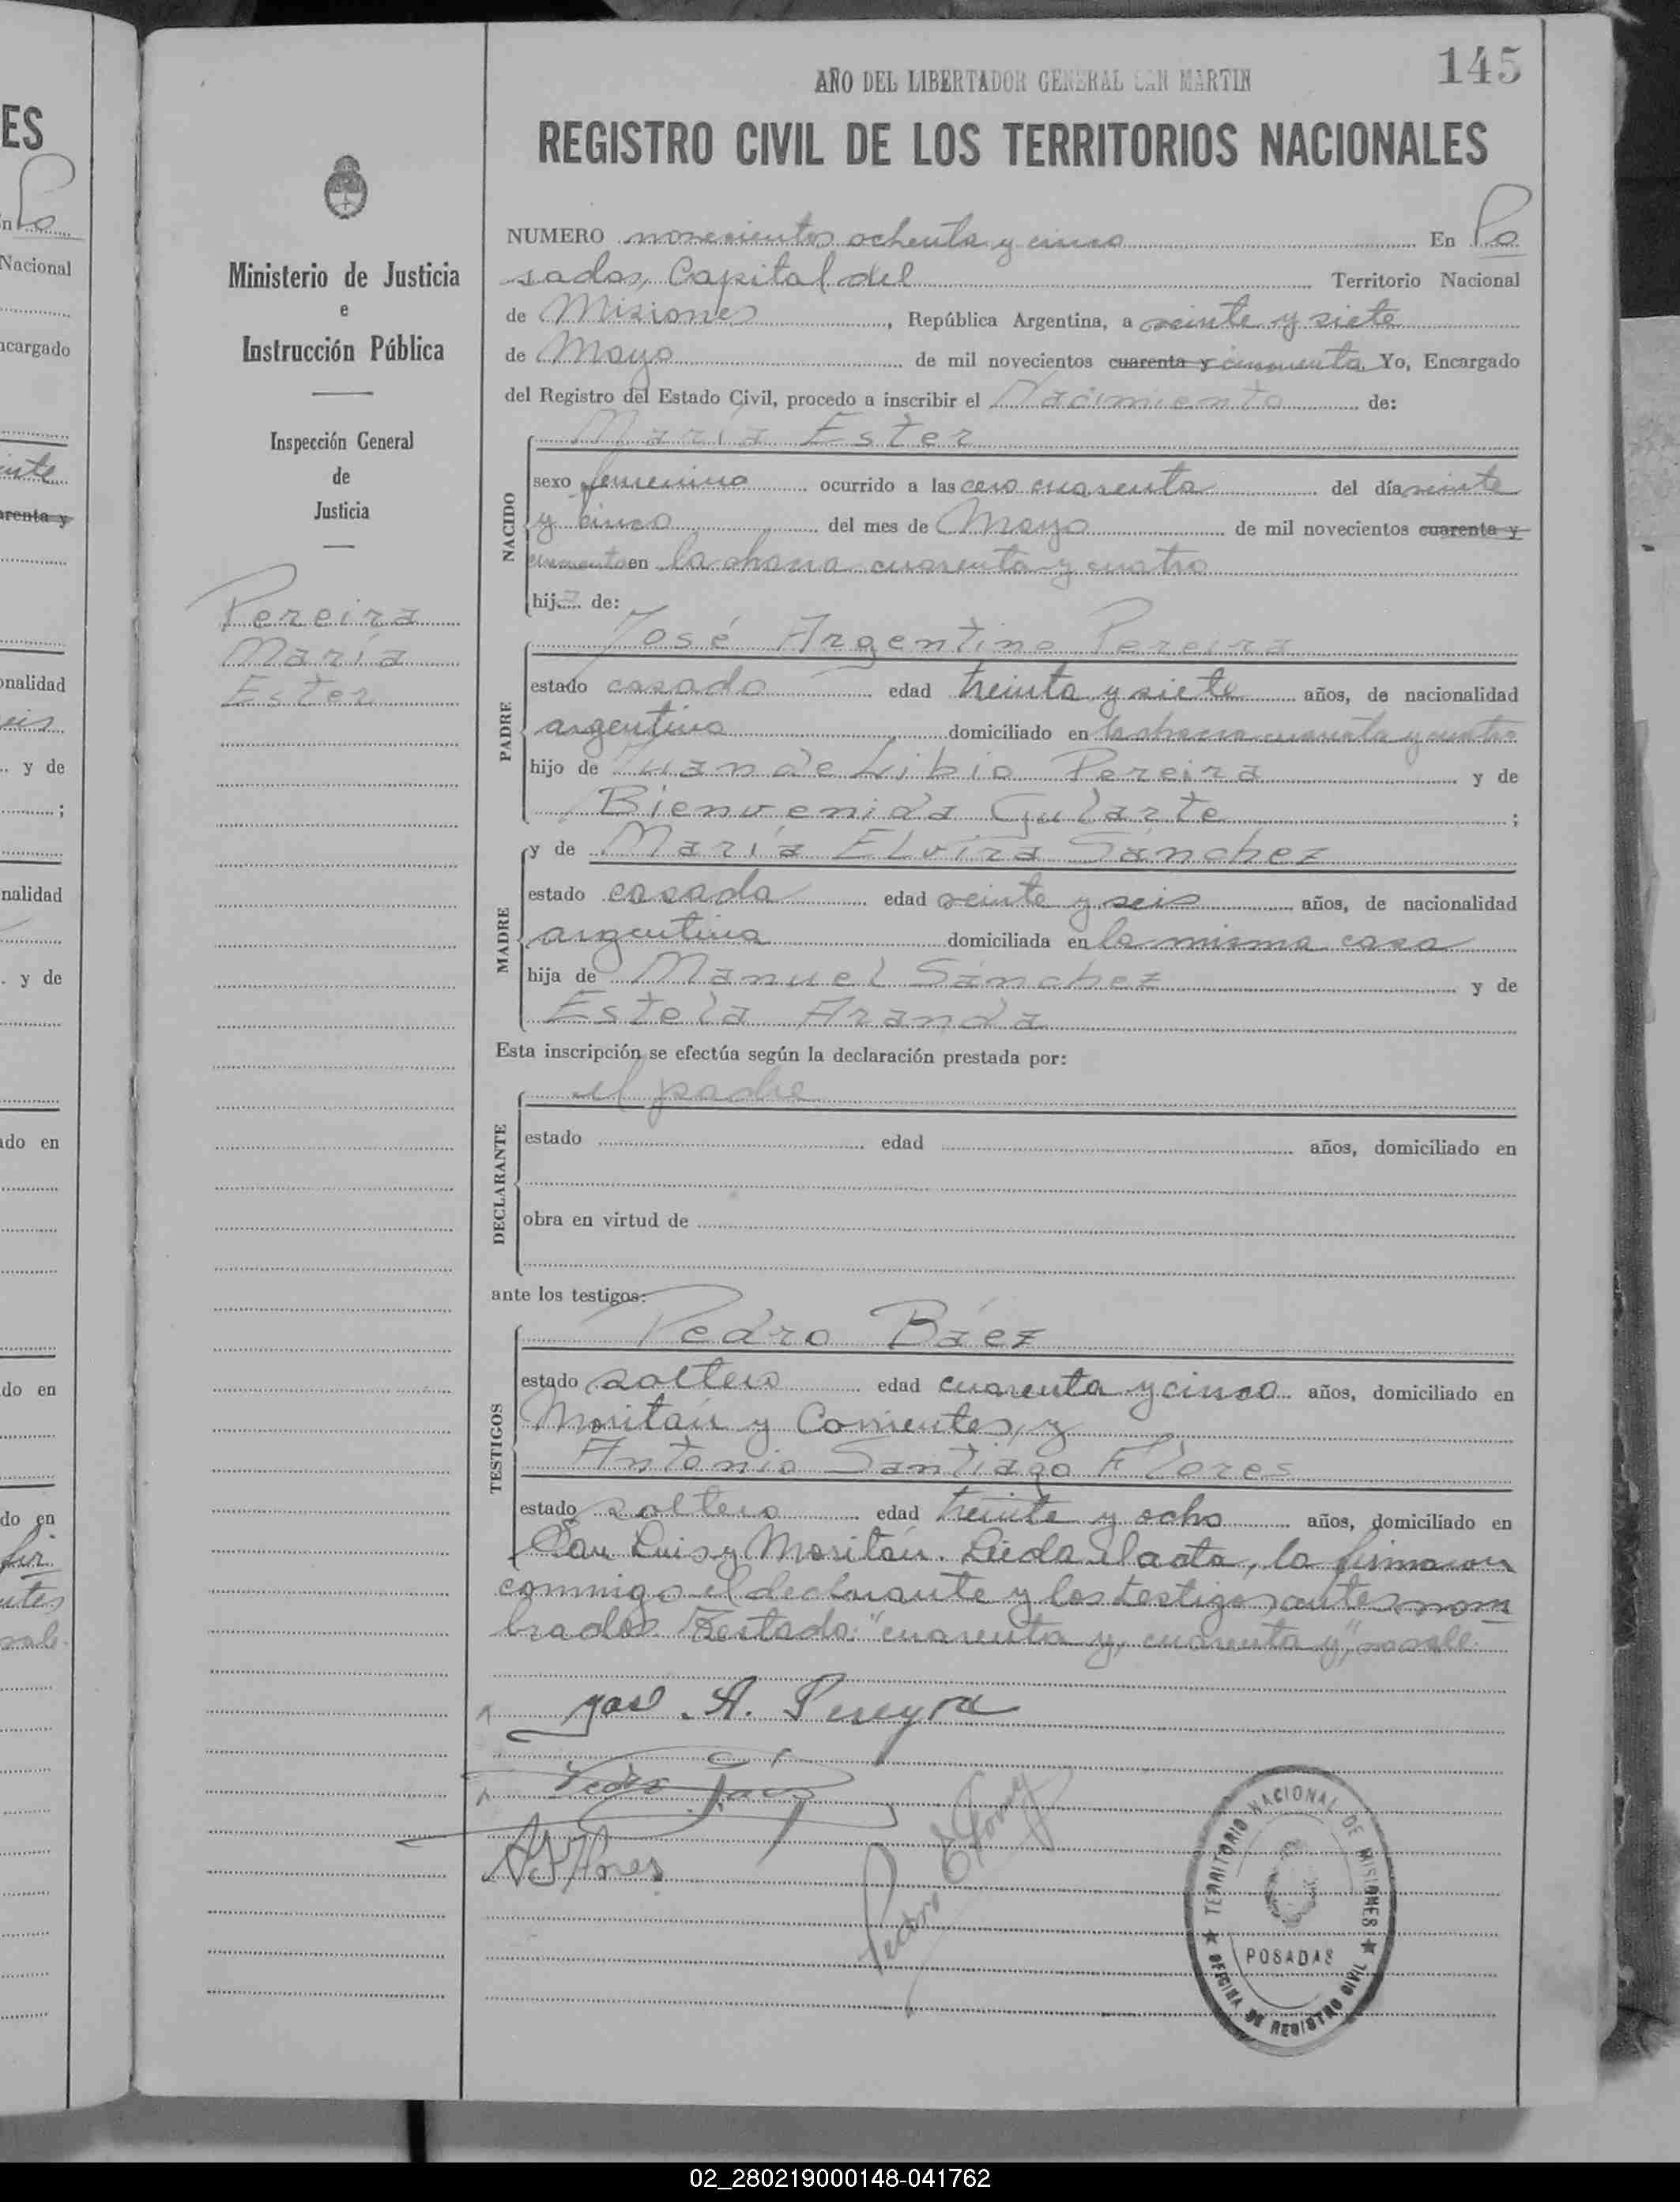 145
AÑO DEL LIBERTADOR GENERAL SAN MARTIN
REGISTRO CIVIL DE LOS TERRITORIOS NACIONALES
Ministerio de Justicia
e
Instrucción Pública
Inspección General
de
Justicia
Pereira
María
Ester
NUMERO novecientos ochenta y cinco En Po
sadas, Capital del Territorio Nacional
de Misiones, República Argentina, a veinte y siete
de Mayo de mil novecientos cuarenta y cincuenta Yo, Encargado
del Registro del Estado Civil, procedo a inscribir el Nacimiento de:
NACIDO
María Ester
sexo femenino ocurrido a las cero cuarenta del día veinte
y cinco del mes de Mayo de mil novecientos cuarenta y
cincuenta en la chacra cuarenta y cuatro
hija de:
PADRE
José Argentino Pereira
estado casado edad treinta y siete años, de nacionalidad
argentino domiciliado en la chacra cuarenta y cuatro
hijo de Juan de Libio Pereira y de
Bienvenida Gularte ;
MADRE
y de María Elvira Sánchez
estado casada edad veinte y seis años, de nacionalidad
argentina domiciliada en la misma casa
hija de Manuel Sánchez y de
Estela Aranda
Esta inscripción se efectúa según la declaración prestada por:
DECLARANTE
el padre
estado edad años, domiciliado en
obra en virtud de
ante los testigos:
TESTIGOS
Pedro Báez
estado soltero edad cuarenta y cinco años, domiciliado en
Moritán y Corrientes, y
Antonio Santiago Flores
estado soltero edad treinta y ocho años, domiciliado en
San Luis y Moritán. Leída el acta, la firmaron
conmigo el declarante y los testigos antes nom
brados. Testado: "cuarenta y, cuarenta y", no vale.
José A. Pereyra
Pedro Báez
A S Flores
Pedro
TERRITORIO NACIONAL DE MISIONES
POSADAS
OFICINA DE REGISTRO CIVIL
02_280219000148-041762